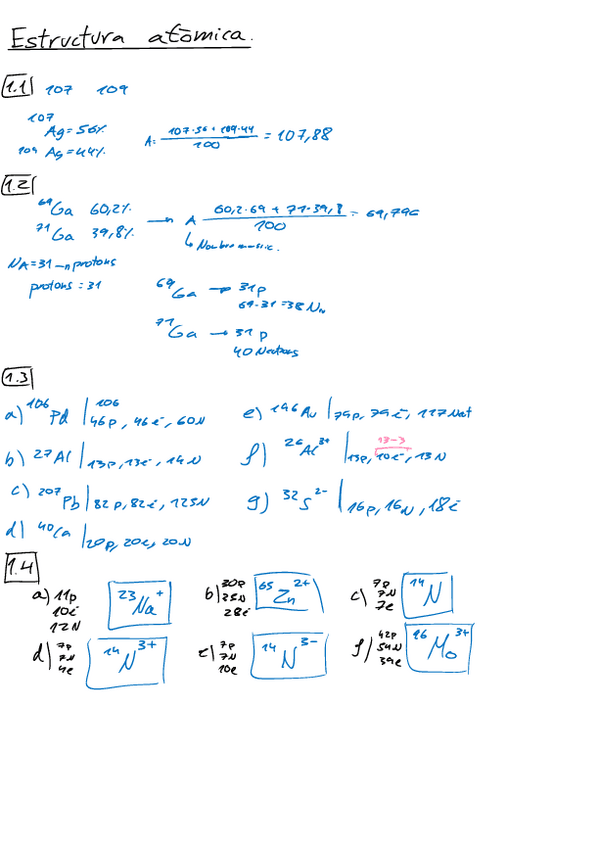 Estructura atòmica.
1.1 107 109
107 Ag = 56%
109 Ag = 44%
A = 107·56 + 109·44 / 100 = 107,88
1.2
69 Ga 60,2%
71 Ga 39,8%
→ A 60,2·69 + 71·39,8 / 100 = 69,796
↳ Nombre massic.
NA = 31 → n protons
protons = 31
69 Ga → 31 p
69-31 = 38 N
71 Ga → 31 p
40 Neutrons
1.3
a) 106 Pd | 106
46p, 46e, 60N
b) 27 Al | 13p, 13e, 14N
c) 207 Pb | 82p, 82e, 125N
d) 40 Ca | 20p, 20e, 20N
e) 196 Au | 79p, 79e, 117 Net
13-3
f) 26 Al 3+ | 13p, 10e, 13N
g) 32 S 2- | 16p, 16N, 18e
1.4
a) 11p
10e
12N
23 Na +
b) 30p
35N
28e
65 Zn 2+
c) 7p
7N
7e
14 N
d) 7p
7N
4e
14 N 3+
e) 7p
7N
10e
14 N 3-
f) 42p
54N
39e
96 Mo 3+